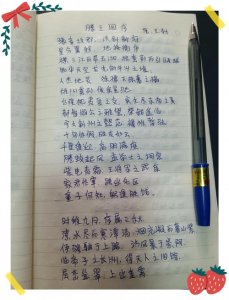 滕王阁序
唐 王勃
豫章故郡,洪都新府
星分翼轸,地接衡庐
襟三江而带五湖,控蛮荆而引瓯越
物华天宝,龙光射牛斗之墟
人杰地灵,徐孺下陈蕃之榻
雄州雾列,俊采星驰
台隍枕夷夏之交,宾主尽东南之美
都督阎公之雅望,棨戟遥临
宇文新州之懿范,襜帷暂驻
十旬休假,胜友如云
千里逢迎,高朋满座
腾蛟起凤,孟学士之词宗
紫电青霜,王将军之武库
家君作宰,路出名区
童子何知,躬逢胜饯
时维九月,序属三秋
潦水尽而寒潭清,烟光凝而暮山紫
俨骖騑于上路,访风景于崇阿
临帝子之长洲,得天人之旧馆
层峦耸翠,上出重霄